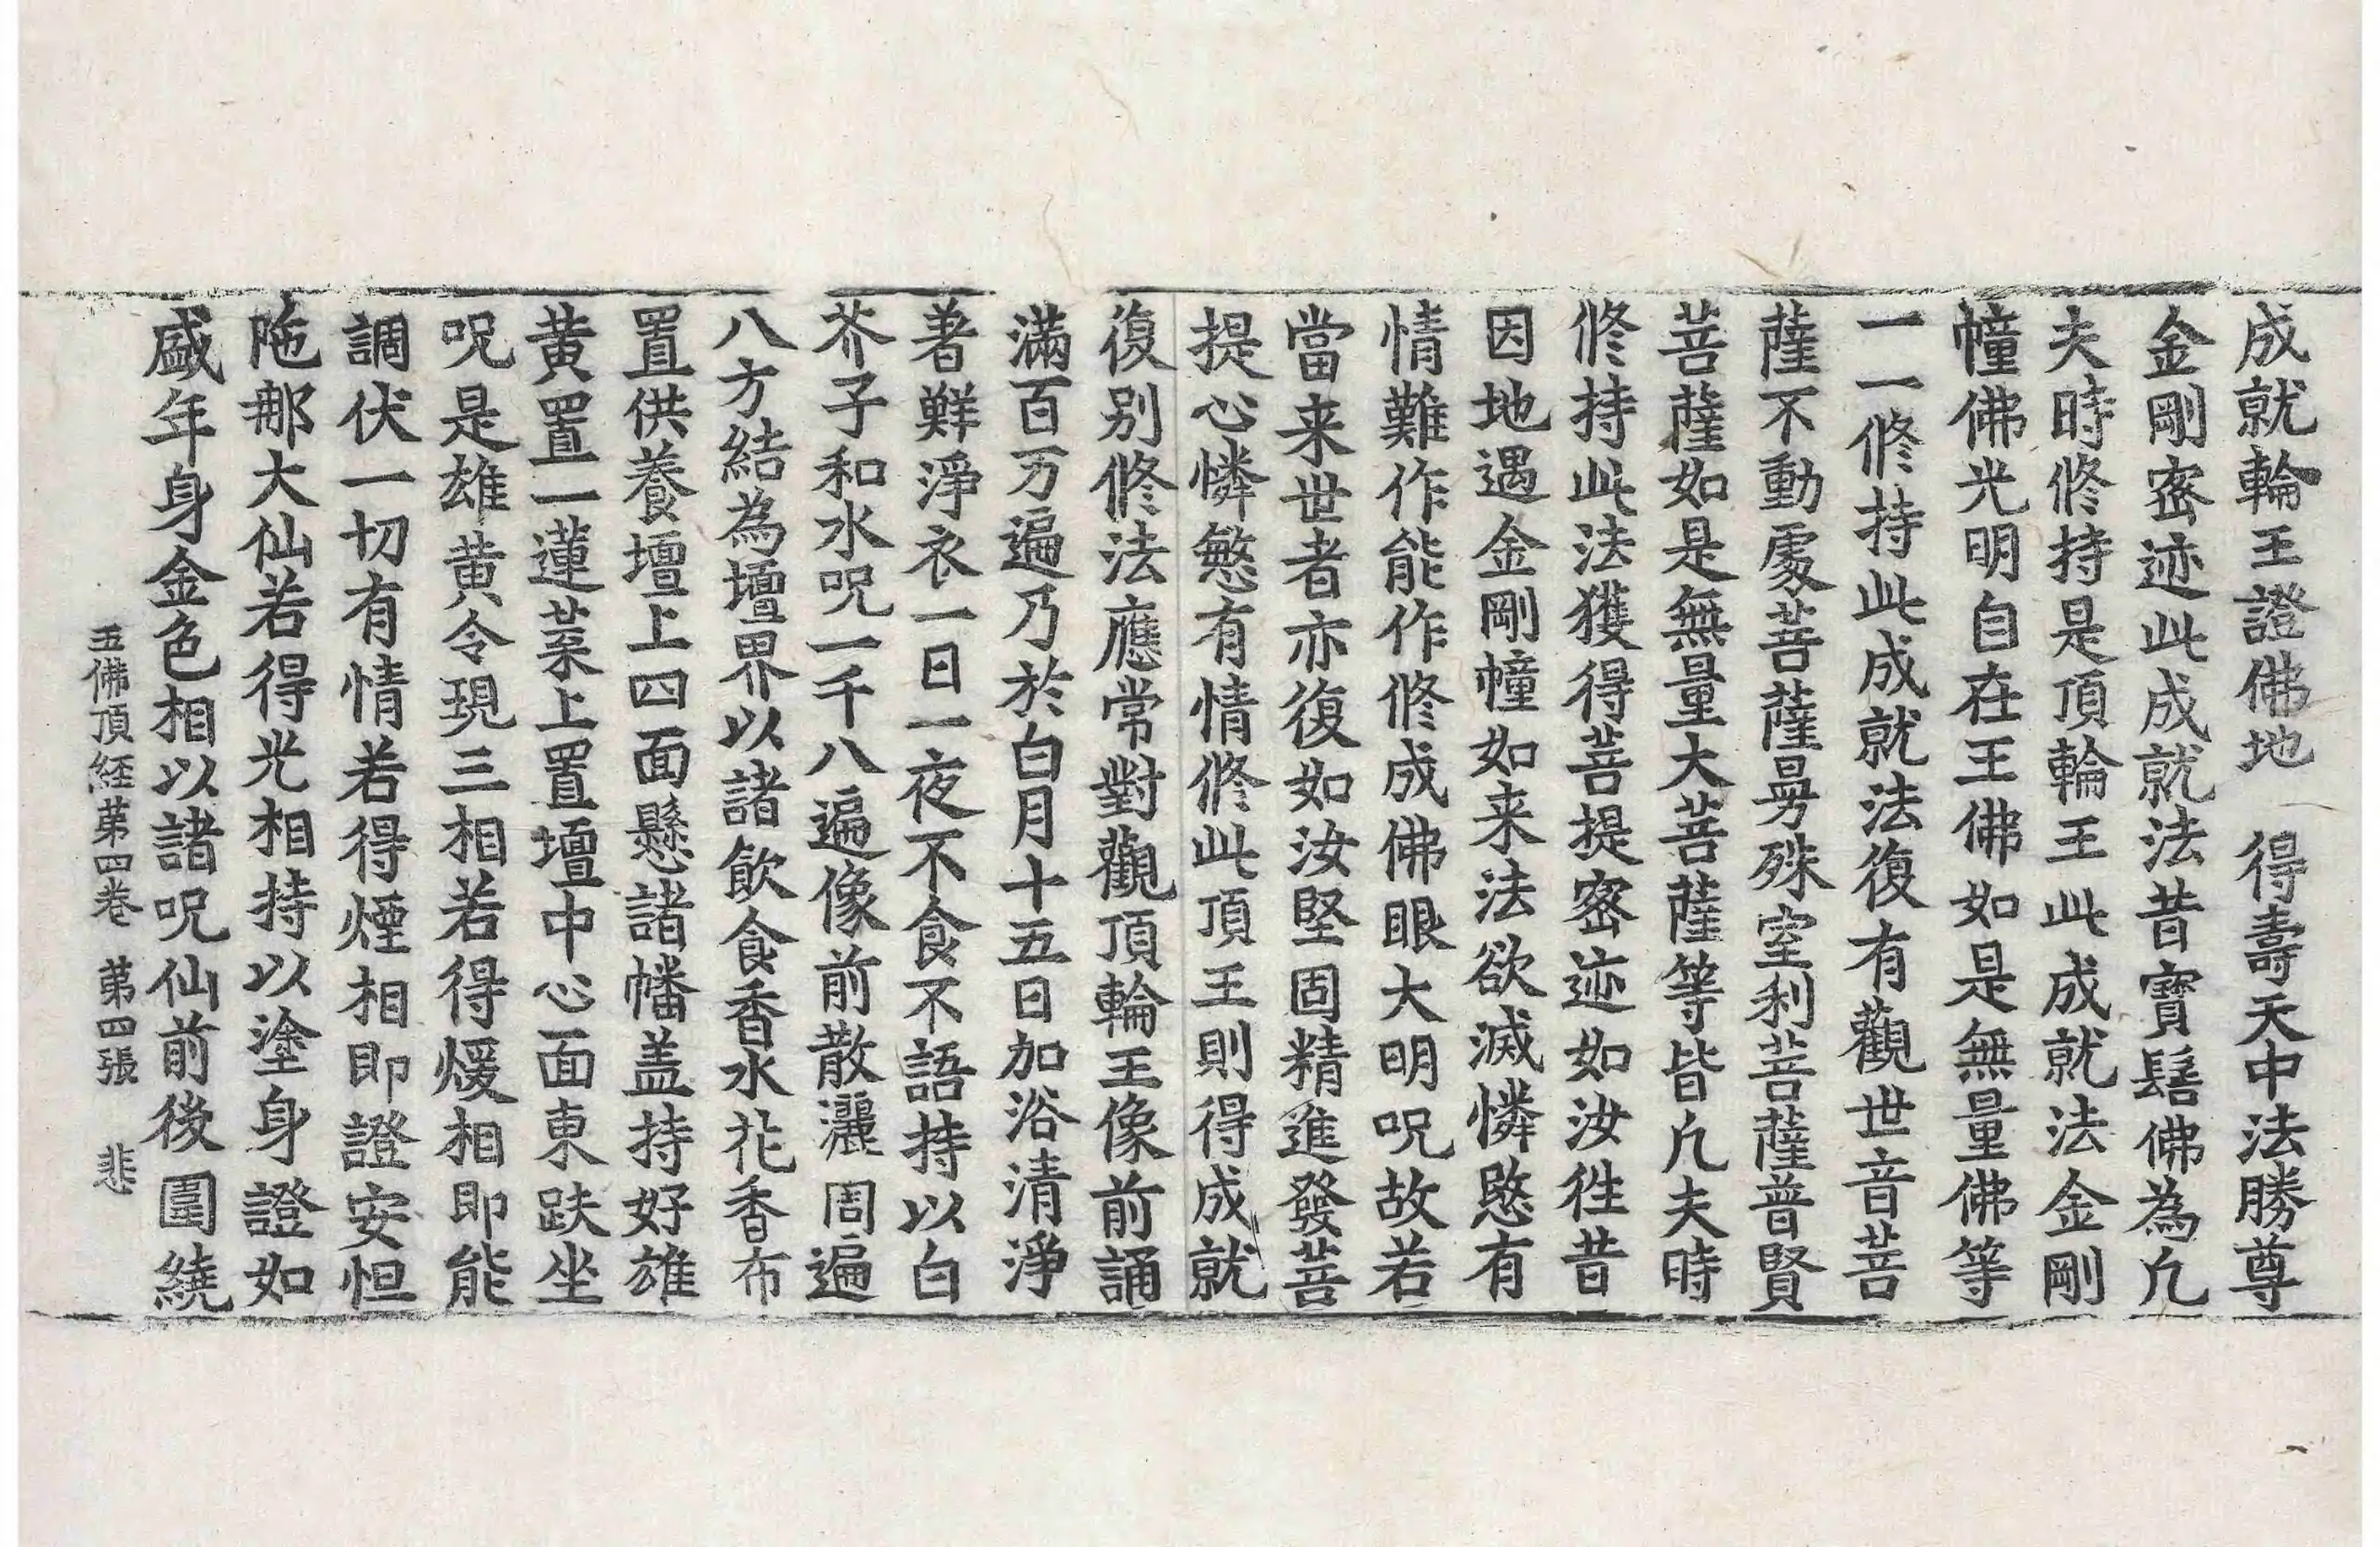 成就輪王證佛地　得壽天中法勝尊
金剛密迹此成就法昔寶髻佛為凢
夫時修持是頂輪王此成就法金剛
幢佛光明自在王佛如是無量佛等
一一修持此成就法復有觀世音菩
薩不動處菩薩曼殊室利菩薩普賢
菩薩如是無量大菩薩等皆凢夫時
修持此法獲得菩提密迹如汝往昔
因地遇金剛幢如来法欲滅憐愍有
情難作能作修成佛眼大明呪故若
當来世者亦復如汝堅固精進發菩
提心憐慜有情修此頂王則得成就
復别修法應常對觀頂輪王像前誦
滿百万遍乃於白月十五日加浴清淨
著鮮淨衣一日一夜不食不語持以白
芥子和水呪一千八遍像前散灑周遍
八方結為壇界以諸飲食香水花香布
置供養壇上四面懸諸幡盖持好雄
黄置一蓮葉上置壇中心面東趺坐
呪是雄黄令現三相若得煖相即能
調伏一切有情若得煙相即證安怛
陁那大仙若得光相持以塗身證如
盛年身金色相以諸呪仙前後圍繞
五佛頂經第四卷　第四張　悲